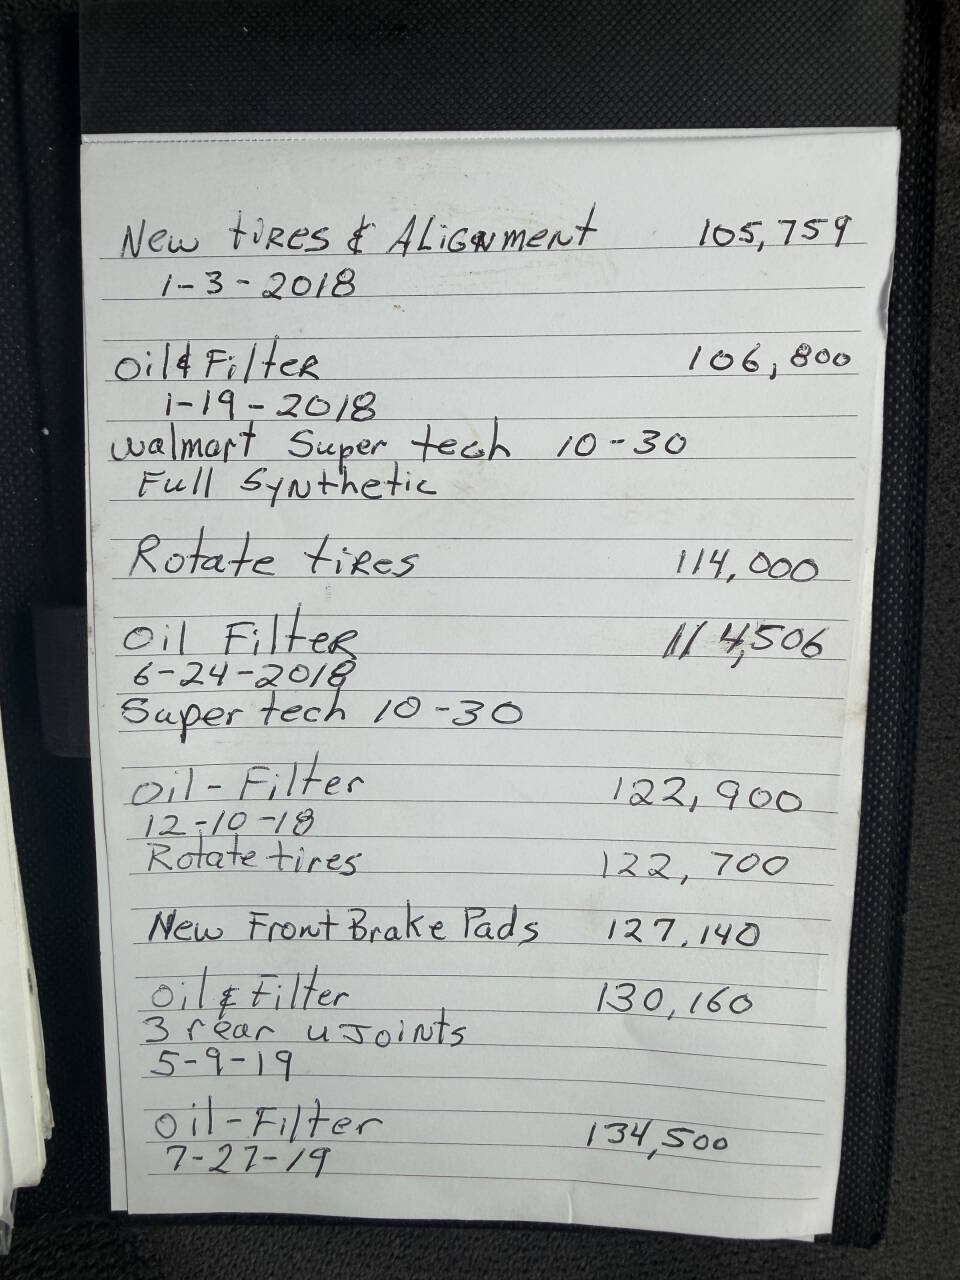 New tires & Alignment 105,759
1-3-2018
Oil & Filter 106,800
1-19-2018
Walmart Super tech 10-30
Full Synthetic
Rotate tires 114,000
Oil Filter 114,506
6-24-2018
Super tech 10-30
Oil - Filter 122,900
12-10-18
Rotate tires 122,700
New Front Brake Pads 127,140
Oil & Filter 130,160
3 rear u Joints
5-9-19
Oil - Filter 134,500
7-27-19